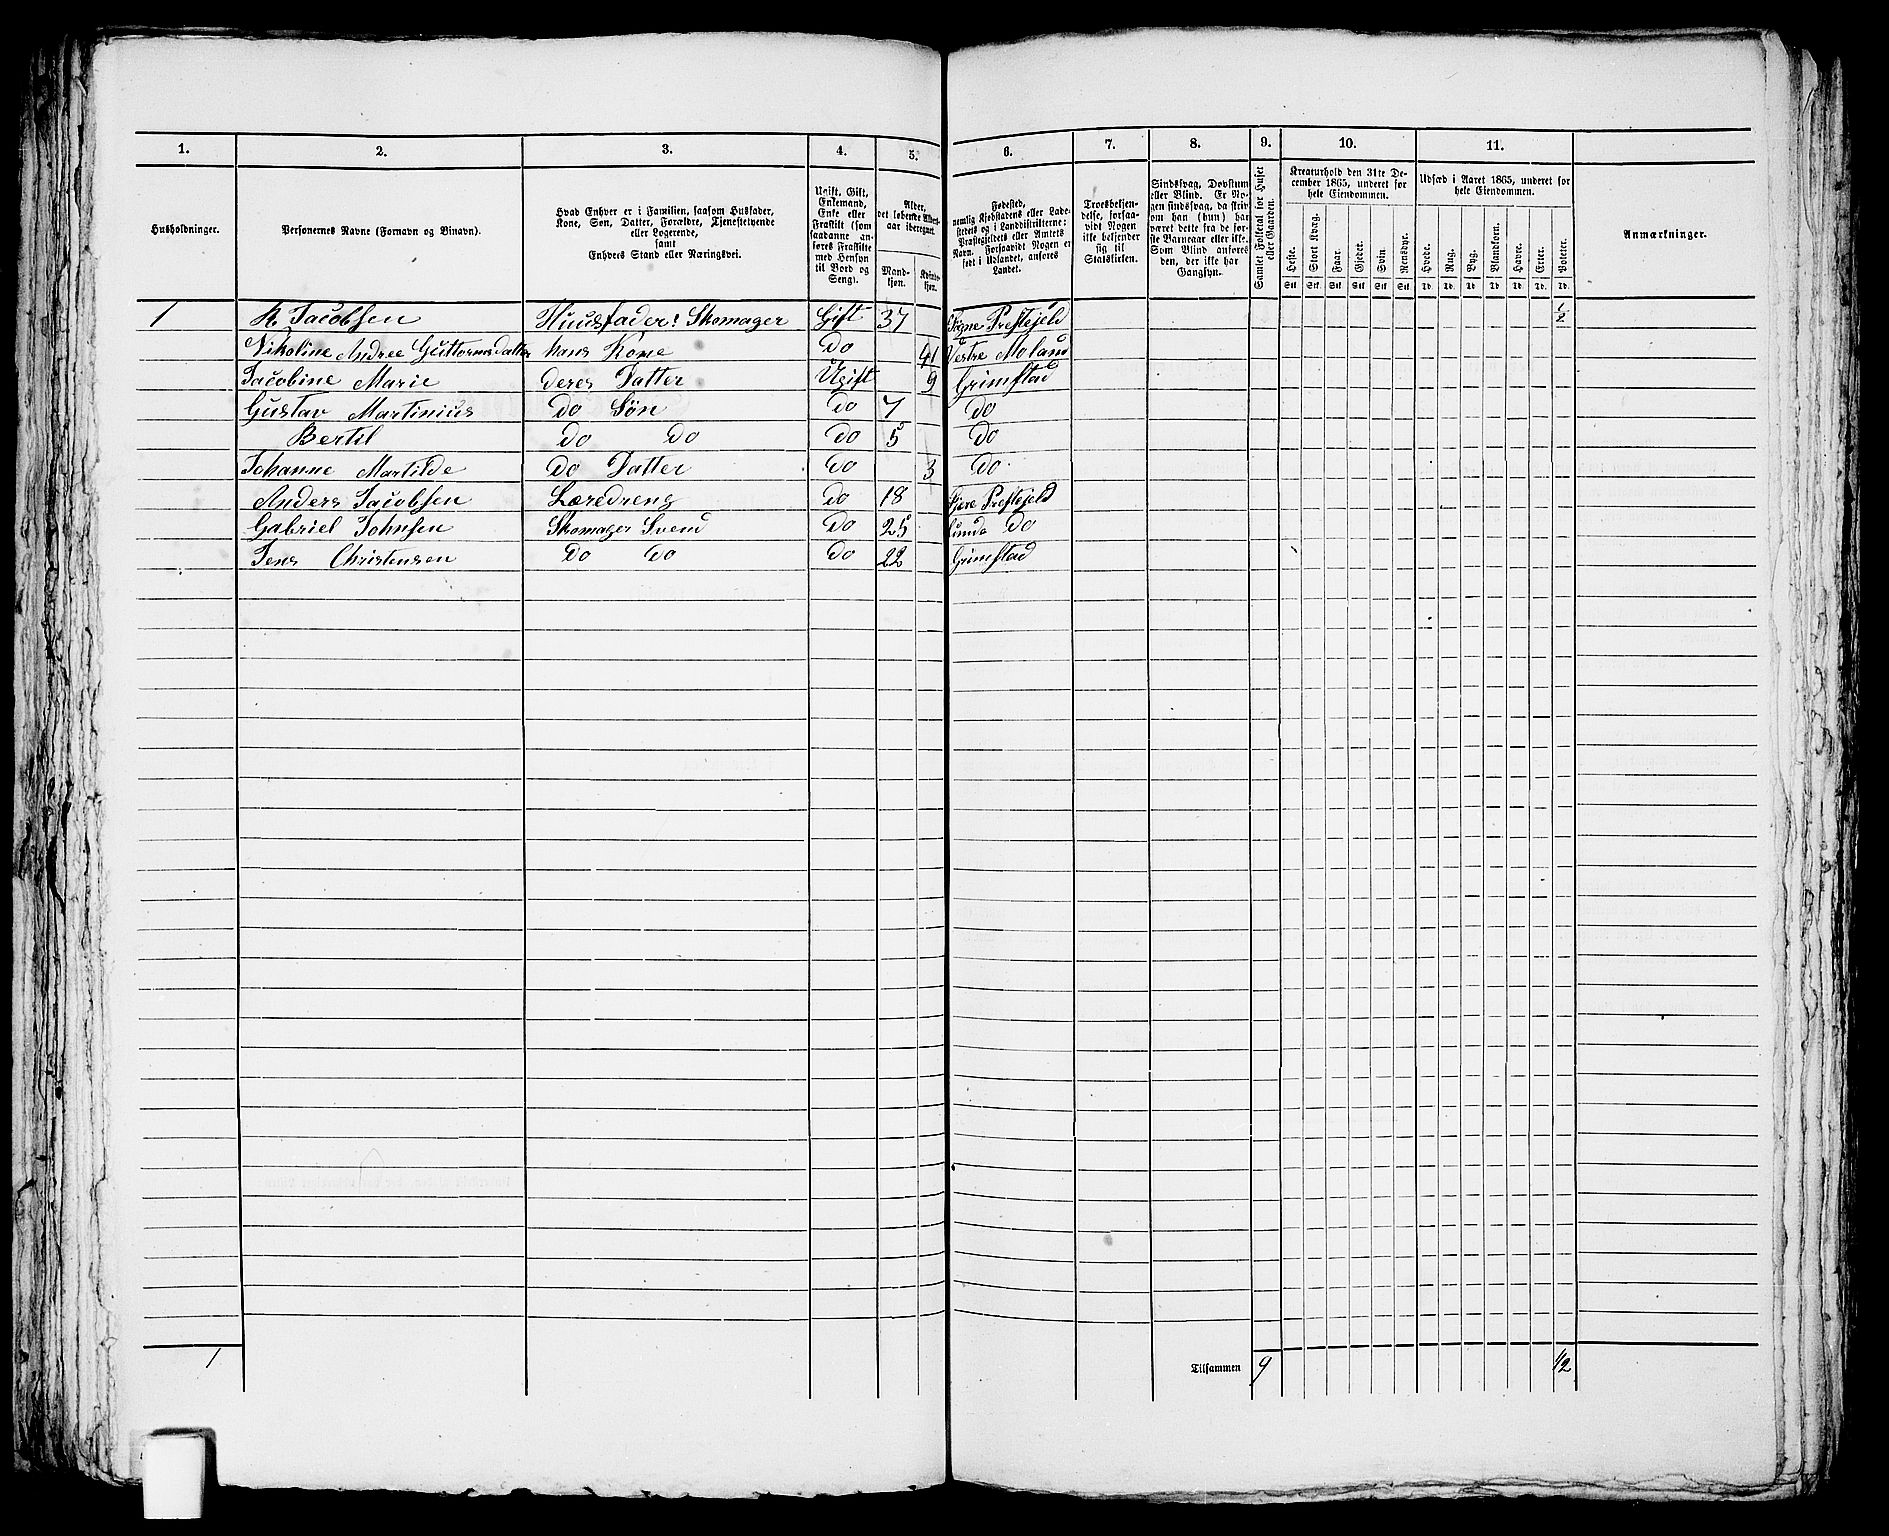 1. 2. 3. 4. 5. 6. 7. 8. 9. 10. 11.
Husholdninger.
Personernes Navne (Fornavn og Binavn).
Hvad Enhver er i Familien, saasom Husfader,
Kone, Søn, Datter, Forældre, Tjenestetyende
eller Logerende,
samt
Enhvers Stand eller Næringsvei.
Ugift, Gift,
Enkemand,
Enke eller
Fraskilt (som
saadanne an-
føres Fraskilte
med Hensyn
til Bord og
Seng).
Alder,
det løbende Alders-
aar iberegnet.
Mand-
kjøn.
Kvinde-
kjøn.
Fødested,
nemlig Kjøbstadens eller Lade-
stedets og i Landdistrikterne:
Præstegjeldets eller Amtets
Navn. Forsaavidt Nogen er
født i Udlandet, anføres
Landet.
Troesbekjen-
delse, forsaa-
vidt Nogen
ikke bekjender
sig til
Statskirken.
Sindssvag, Døvstum
eller Blind. Er No-
gen sindssvag, da skriv
om han (hun) har
været dette fra de før-
ste Barneaar eller ikke.
Som Blind anføres
den, der ikke har
Gangsyn.
Samlet Folketal for Huset
eller Gaarden.
Kreaturhold den 31te De-
cember 1865, underet for
hele Eiendommen.
Heste. Stort Kvæg. Faar. Gjeder. Svin. Rensdyr.
Stk. Stk. Stk. Stk. Stk. Stk.
Udsæd i Aaret 1865, underet for
hele Eiendommen.
Hvede. Rug. Byg. Blandkorn. Havre. Erter. Poteter.
Td. Td. Td. Td. Td. Td. Td.
Anmærkninger.
1 R. Jacobsen Huusfader: Skomager Gift 37 Præstejeld 1/2
Nikoline Andree Guttormsdatter hans Kone Do 41 Vestre Moland
Jacobine Marie deres Datter Ugift 9 Grimstad
Gustav Martinius Do Søn Do 7 Do
Bertil Do Do Do 5 Do
Johanne Martilde Do Datter Do 3 Do
Anders Jacobsen Læredreng Do 18 Præstejeld
Gabriel Johnsen Skomager Svend Do 25 Do
Jens Christensen Do Do Do 22 Grimstad
1 Tilsammen 9 1/2